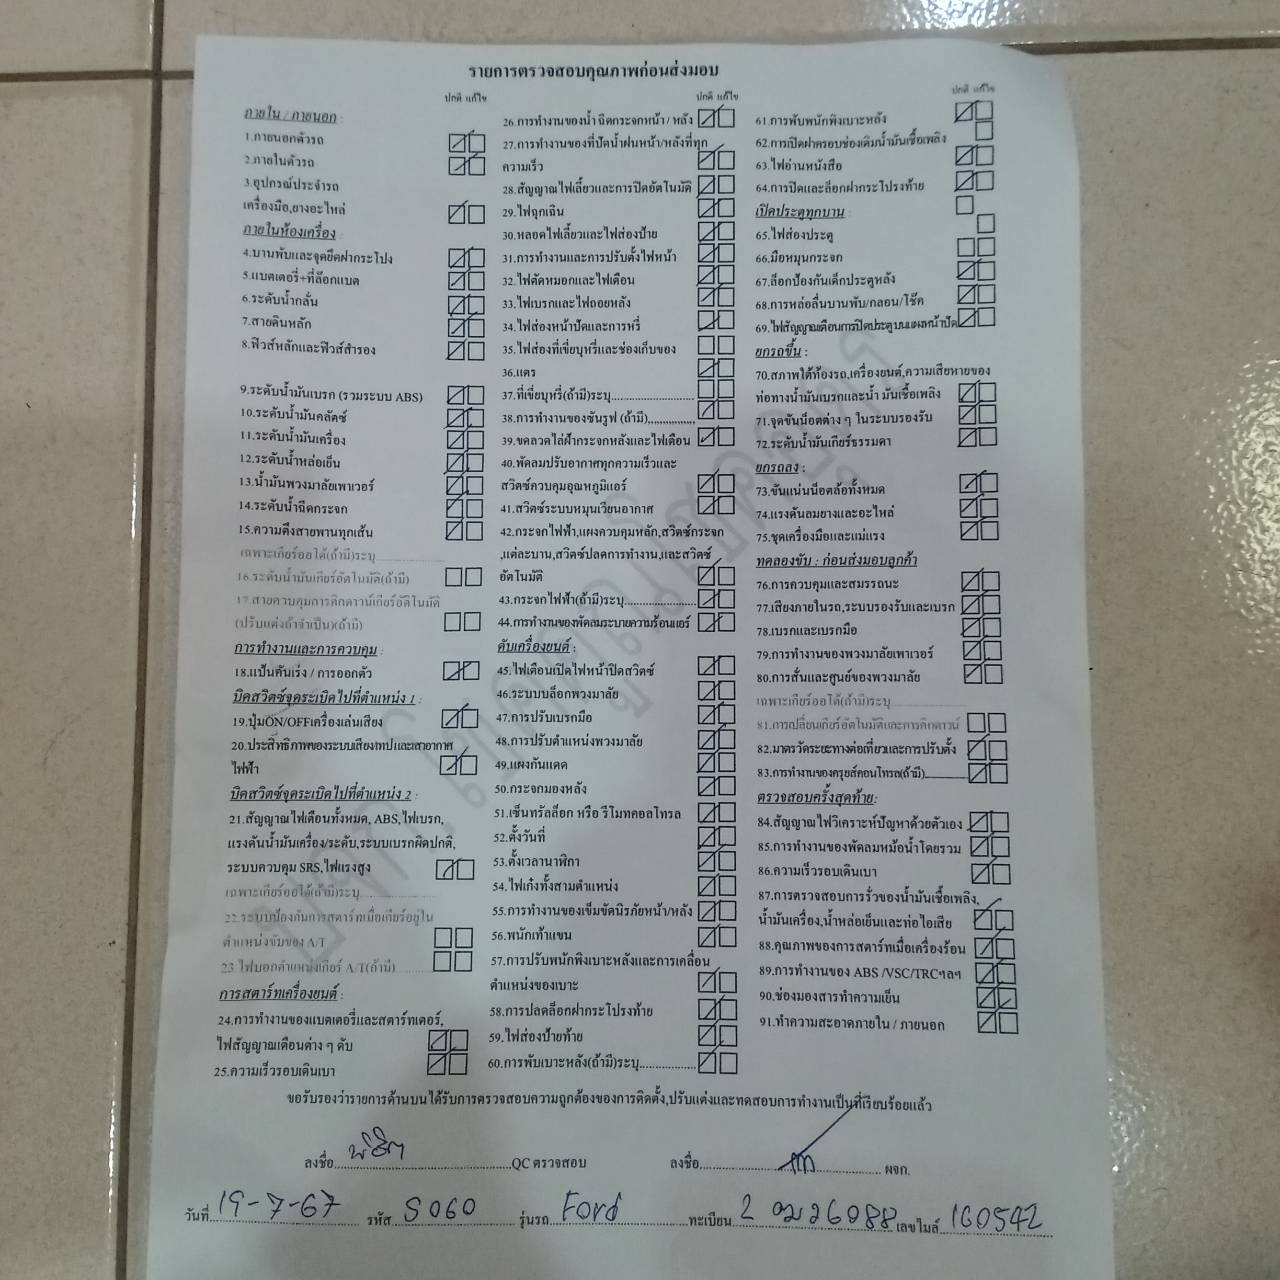 รายการตรวจสอบคุณภาพก่อนส่งมอบ
ปกติ แก้ไข
ภายใน / ภายนอก :
1.ภายนอกตัวรถ
2.ภายในตัวรถ
3.อุปกรณ์ประจำรถ
เครื่องมือ,ยางอะไหล่
ภายในห้องเครื่อง :
4.บานพับและจุดยึดฝากระโปง
5.แบตเตอรี่+ที่ล๊อกแบต
6.ระดับน้ำกลั่น
7.สายดินหลัก
8.ฟิวส์หลักและฟิวส์สำรอง
9.ระดับน้ำมันเบรก (รวมระบบ ABS)
10.ระดับน้ำมันคลัตช์
11.ระดับน้ำมันเครื่อง
12.ระดับน้ำหล่อเย็น
13.น้ำมันพวงมาลัยเพาเวอร์
14.ระดับน้ำฉีดกระจก
15.ความตึงสายพานทุกเส้น
เฉพาะเกียร์ออโต้(ถ้ามี)ระบุ
16.ระดับน้ำมันเกียร์อัตโนมัติ(ถ้ามี)
17.สายควบคุมการคิกดาวน์เกียร์อัติโนมัติ
(ปรับแต่งถ้าจำเป็น)(ถ้ามี)
การทำงานและการควบคุม :
18.แป้นคันเร่ง / การออกตัว
บิดสวิตซ์จุดระเบิดไปที่ตำแหน่ง 1 :
19.ปุ่มON/OFFเครื่องเล่นเสียง
20.ประสิทธิภาพของระบบเสียง/เทปและเสาอากาศ
ไฟฟ้า
บิดสวิตซ์จุดระเบิดไปที่ตำแหน่ง 2 :
21.สัญญาณไฟเตือนทั้งหมด, ABS,ไฟเบรก,
แรงดันน้ำมันเครื่อง/ระดับ,ระบบเบรกผิดปกติ,
ระบบควบคุม SRS,ไฟแรงสูง
เฉพาะเกียร์ออโต้(ถ้ามี)ระบุ
22.ระบบป้องกันการสตาร์ทเมื่อเกียร์อยู่ใน
ตำแหน่งขับของ A/T
23.ไฟบอกตำแหน่งเกียร์ A/T(ถ้ามี)
การสตาร์ทเครื่องยนต์ :
24.การทำงานของแบตเตอรี่และสตาร์ทเตอร์,
ไฟสัญญาณเตือนต่าง ๆ ดับ
25.ความเร็วรอบเดินเบา
ปกติ แก้ไข
26.การทำงานของน้ำ ฉีดกระจกหน้า / หลัง
27.การทำงานของที่ปัดน้ำฝนหน้า/หลังที่ทุก
ความเร็ว
28.สัญญาณไฟเลี้ยวและการปิดอัตโนมัติ
29.ไฟฉุกเฉิน
30.หลอดไฟเลี้ยวและไฟส่องป้าย
31.การทำงานและการปรับตั้งไฟหน้า
32.ไฟตัดหมอกและไฟเตือน
33.ไฟเบรกและไฟถอยหลัง
34.ไฟส่องหน้าปัดและการหรี่
35.ไฟส่องที่เขี่ยบุหรี่และช่องเก็บของ
36.แตร
37.ที่เขี่ยบุหรี่(ถ้ามี)ระบุ
38.การทำงานของซันรูฟ (ถ้ามี)
39.ขดลวดไล่ฝ้ากระจกหลังและไฟเตือน
40.พัดลมปรับอากาศทุกความเร็วและ
สวิตซ์ควบคุมอุณหภูมิแอร์
41.สวิตซ์ระบบหมุนเวียนอากาศ
42.กระจกไฟฟ้า,แผงควบคุมหลัก,สวิตซ์กระจก
,แต่ละบาน,สวิตซ์ปลดการทำงาน,และสวิตซ์
อัตโนมัติ
43.กระจกไฟฟ้า(ถ้ามี)ระบุ
44.การทำงานของพัดลมระบายความร้อนแอร์
ดับเครื่องยนต์ :
45.ไฟเตือนเปิดไฟหน้าปิดสวิตซ์
46.ระบบบล๊อกพวงมาลัย
47.การปรับเบรกมือ
48.การปรับตำแหน่งพวงมาลัย
49.แผงกันแดด
50.กระจกมองหลัง
51.เซ็นทรัลล็อก หรือ รีโมทคอลโทรล
52.ตั้งวันที่
53.ตั้งเวลานาฬิกา
54.ไฟเก๋งทั้งสามตำแหน่ง
55.การทำงานของเข็มขัดนิรภัยหน้า/หลัง
56.พนักเท้าแขน
57.การปรับพนักพิงเบาะหลังและการเคลื่อน
ตำแหน่งของเบาะ
58.การปลดล็อกฝากระโปรงท้าย
59.ไฟส่องป้ายท้าย
60.การพับเบาะหลัง(ถ้ามี)ระบุ
ปกติ แก้ไข
61.การพับพนักพิงเบาะหลัง
62.การเปิดฝาครอบช่องเติมน้ำมันเชื้อเพลิง
63.ไฟอ่านหนังสือ
64.การปิดและล็อกฝากระโปรงท้าย
เปิดประตูทุกบาน
65.ไฟส่องประตู
66.มือหมุนกระจก
67.ล็อกป้องกันเด็กประตูหลัง
68.การหล่อลื่นบานพับ/กลอน/โช๊ค
69.ไฟสัญญาณเตือนการปิดประตูบนแผงหน้าปัด
ยกรถขึ้น :
70.สภาพใต้ท้องรถ,เครื่องยนต์,ความเสียหายของ
ท่อทางน้ำมันเบรกและน้ำ มันเชื้อเพลิง
71.จุดขันน็อตต่าง ๆ ในระบบรองรับ
72.ระดับน้ำมันเกียร์ธรรมดา
ยกรถลง :
73.ขันแน่นน็อตล้อทั้งหมด
74.แรงดันลมยางและอะไหล่
75.ชุดเครื่องมือและแม่แรง
ทดลองขับ : ก่อนส่งมอบลูกค้า
76.การควบคุมและสมรรถนะ
77.เสียงภายในรถ,ระบบรองรับและเบรก
78.เบรกและเบรกมือ
79.การทำงานของพวงมาลัยเพาเวอร์
80.การสั่นและศูนย์ของพวงมาลัย
เฉพาะเกียร์ออโต้(ถ้ามี)ระบุ
81.การเปลี่ยนเกียร์อัตโนมัติและการคิกดาวน์
82.มาตรวัดระยะทางต่อเที่ยวและการปรับตั้ง
83.การทำงานของครุยส์คอนโทรล(ถ้ามี)
ตรวจสอบครั้งสุดท้าย:
84.สัญญาณไฟวิเคราะห์ปัญหาด้วยตัวเอง
85.การทำงานของพัดลมหม้อน้ำโดยรวม
86.ความเร็วรอบเดินเบา
87.การตรวจสอบการรั่วของน้ำมันเชื้อเพลิง,
น้ำมันเครื่อง,น้ำหล่อเย็นและท่อไอเสีย
88.คุณภาพของการสตาร์ทเมื่อเครื่องร้อน
89.การทำงานของ ABS /VSC/TRCฯลฯ
90.ช่องมองสารทำความเย็น
91.ทำความสะอาดภายใน / ภายนอก
ขอรับรองว่ารายการด้านบนได้รับการตรวจสอบความถูกต้องของการติดตั้ง,ปรับแต่งและทดสอบการทำงานเป็นที่เรียบร้อยแล้ว
ลงชื่อ QC ตรวจสอบ ลงชื่อ ผจก.
วันที่ 19-7-67 รหัส S060 รุ่นรถ Ford ทะเบียน 2 ฒฌ6088 เลขไมล์ 160542